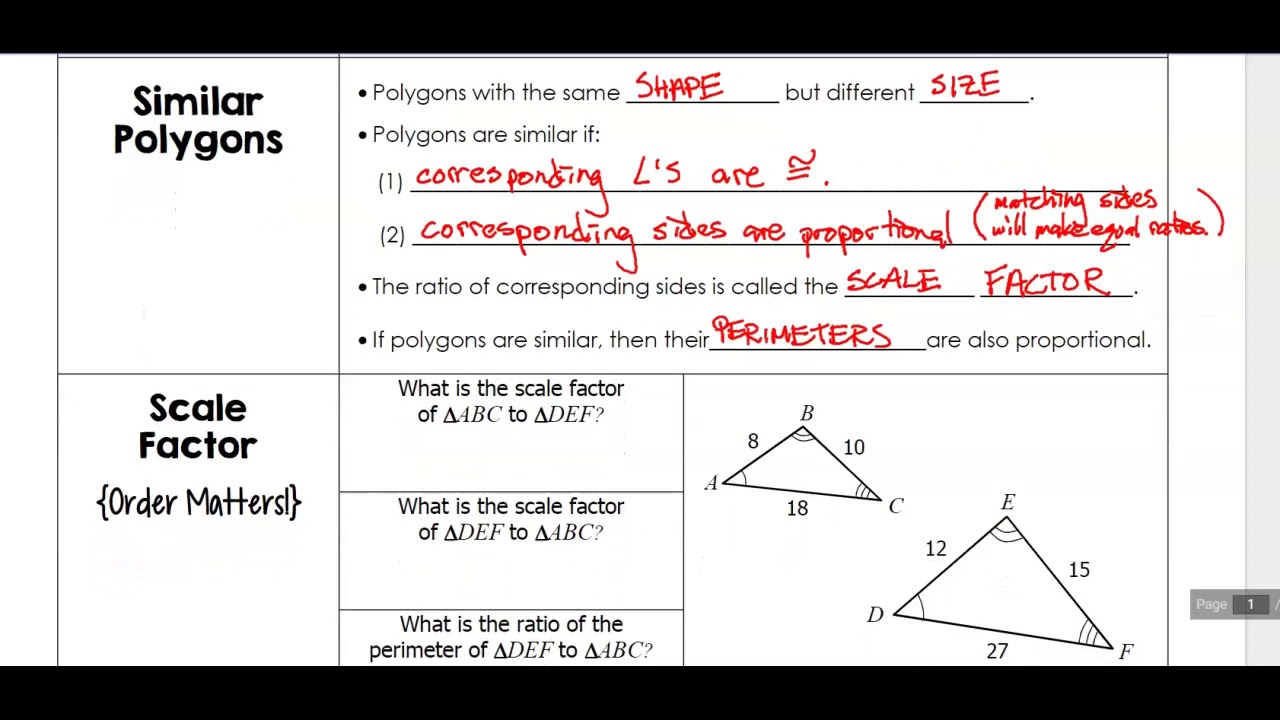 Similar
Polygons
• Polygons with the same SHAPE but different SIZE.
• Polygons are similar if:
(1) corresponding L'S are ≅.
(2) corresponding sides are proportional (matching sides
will make equal ratios.)
• The ratio of corresponding sides is called the SCALE FACTOR.
• If polygons are similar, then their PERIMETERS are also proportional.
Scale
Factor
{Order Matters!}
What is the scale factor
of ΔABC to ΔDEF?
What is the scale factor
of ΔDEF to ΔABC?
What is the ratio of the
perimeter of ΔDEF to ΔABC?
B
8
10
A
C
18
E
12
15
D
27
F
Page 1 /